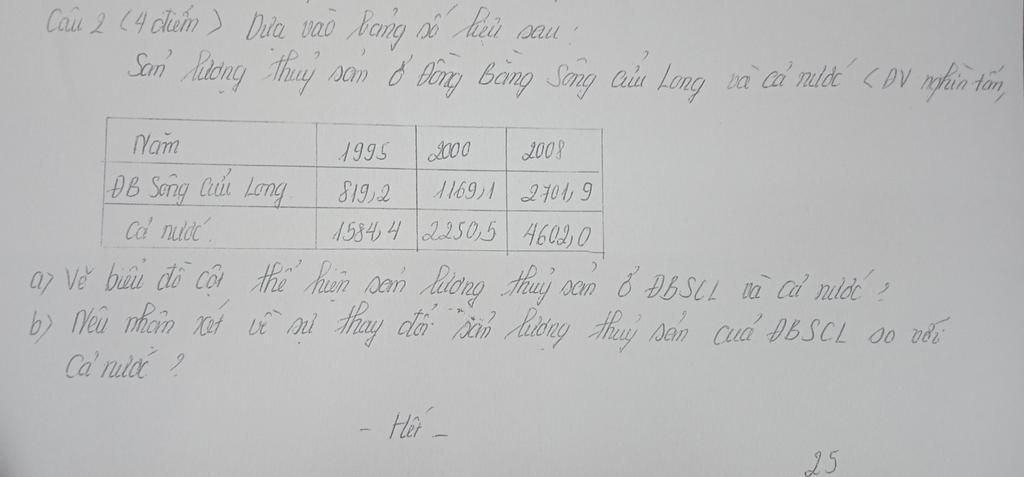 Câu 2 (4 điểm) Dựa vào bảng số liệu sau:
Sản lượng thuỷ sản ở Đồng Bằng Sông Cửu Long và cả nước (ĐV nghìn tấn,
Năm 1995 2000 2008
ĐB Sông Cửu Long 819,2 1169,1 2701,9
Cả nước. 1584,4 2250,5 4602,0
a) Vẽ biểu đồ cột thể hiện sản lượng thuỷ sản ở ĐBSCL và cả nước?
b) Nêu nhận xét về sự thay đổi sản lượng thuỷ sản của ĐBSCL so với
Cả nước?
- Hết -
25